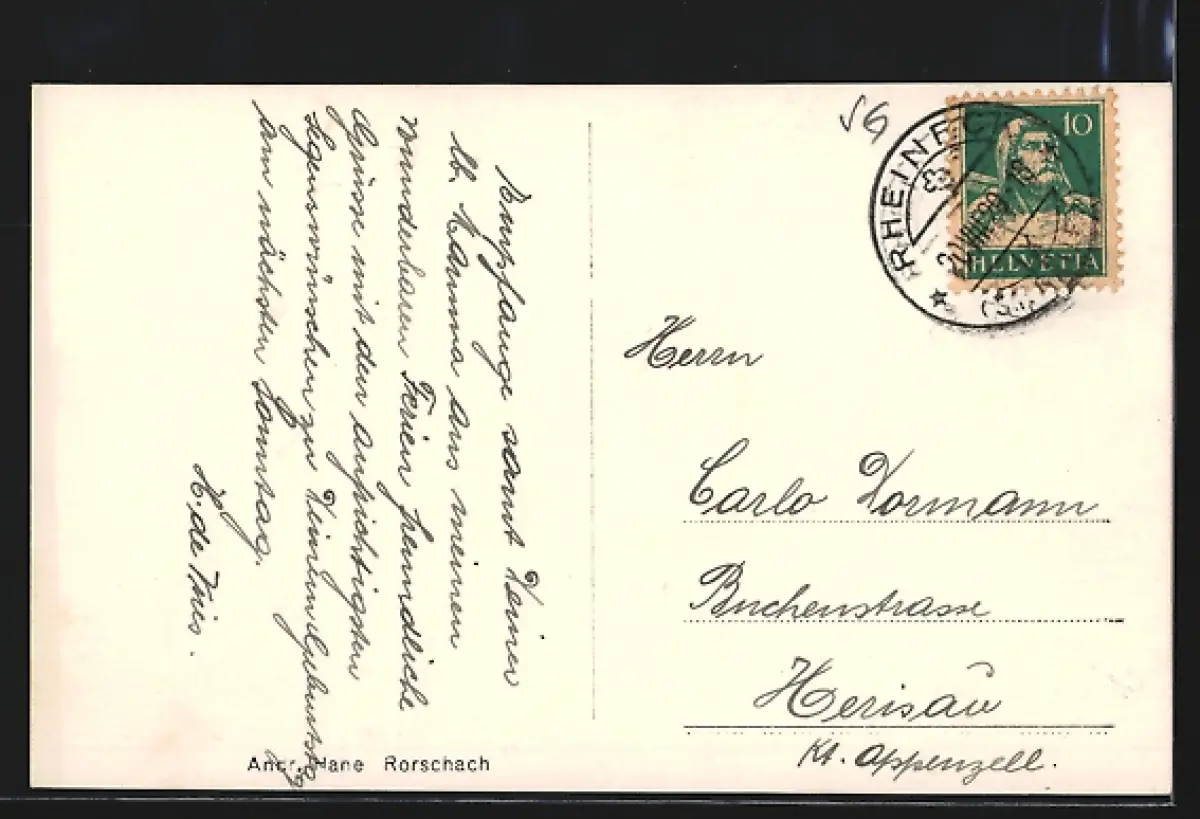 Empfange samt Deiner
lb. Mamma aus meinen
wunderbaren Ferien freundliche
Grüsse mit den aufrichtigsten
Segenswünschen zu Deinem Geburtstag
am nächsten Sonntag.
H. de
Andr. Hane Rorschach
SG
RHEINECK
10
HELVETIA
Herrn
Carlo Dormann
Buchenstrasse
Herisau
Kt. Appenzell.